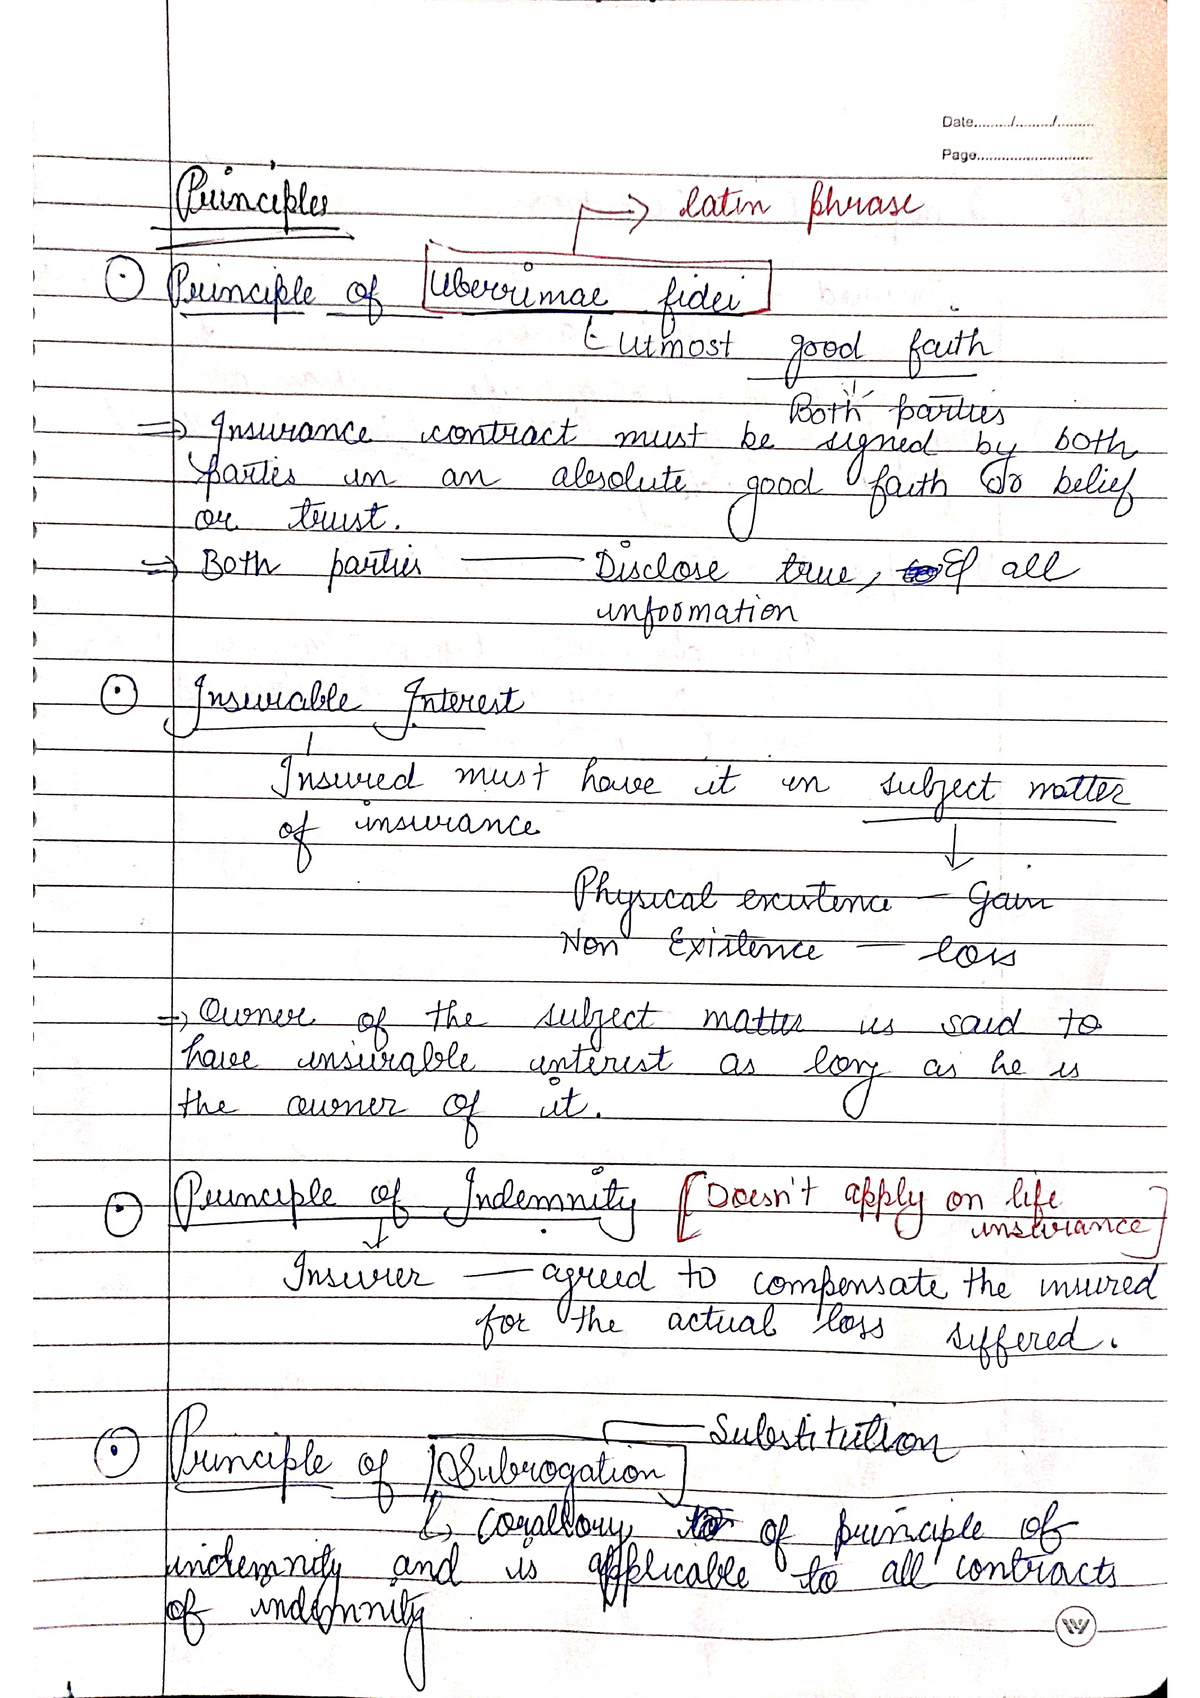 Date......../......../........
Page..............................
Principles
→ latin phrase
Principle of Uberrimae fidei
utmost good faith
Both parties
⇒ Insurance contract must be signed by both
parties in an absolute good faith or belief
or trust.
⇒ Both parties — Disclose true, & all
information
Insurable Interest
Insured must have it in subject matter
of insurance
↓
Physical existence — Gain
Non Existence — loss
⇒ Owner of the subject matter is said to
have insurable interest as long as he is
the owner of it.
Principle of Indemnity [Doesn't apply on life
insurance]
Insurer — agreed to compensate the insured
for the actual loss suffered.
Substitution
Principle of Subrogation
↳ Corallory of principle of
indemnity and is applicable to all contracts
of indemnity